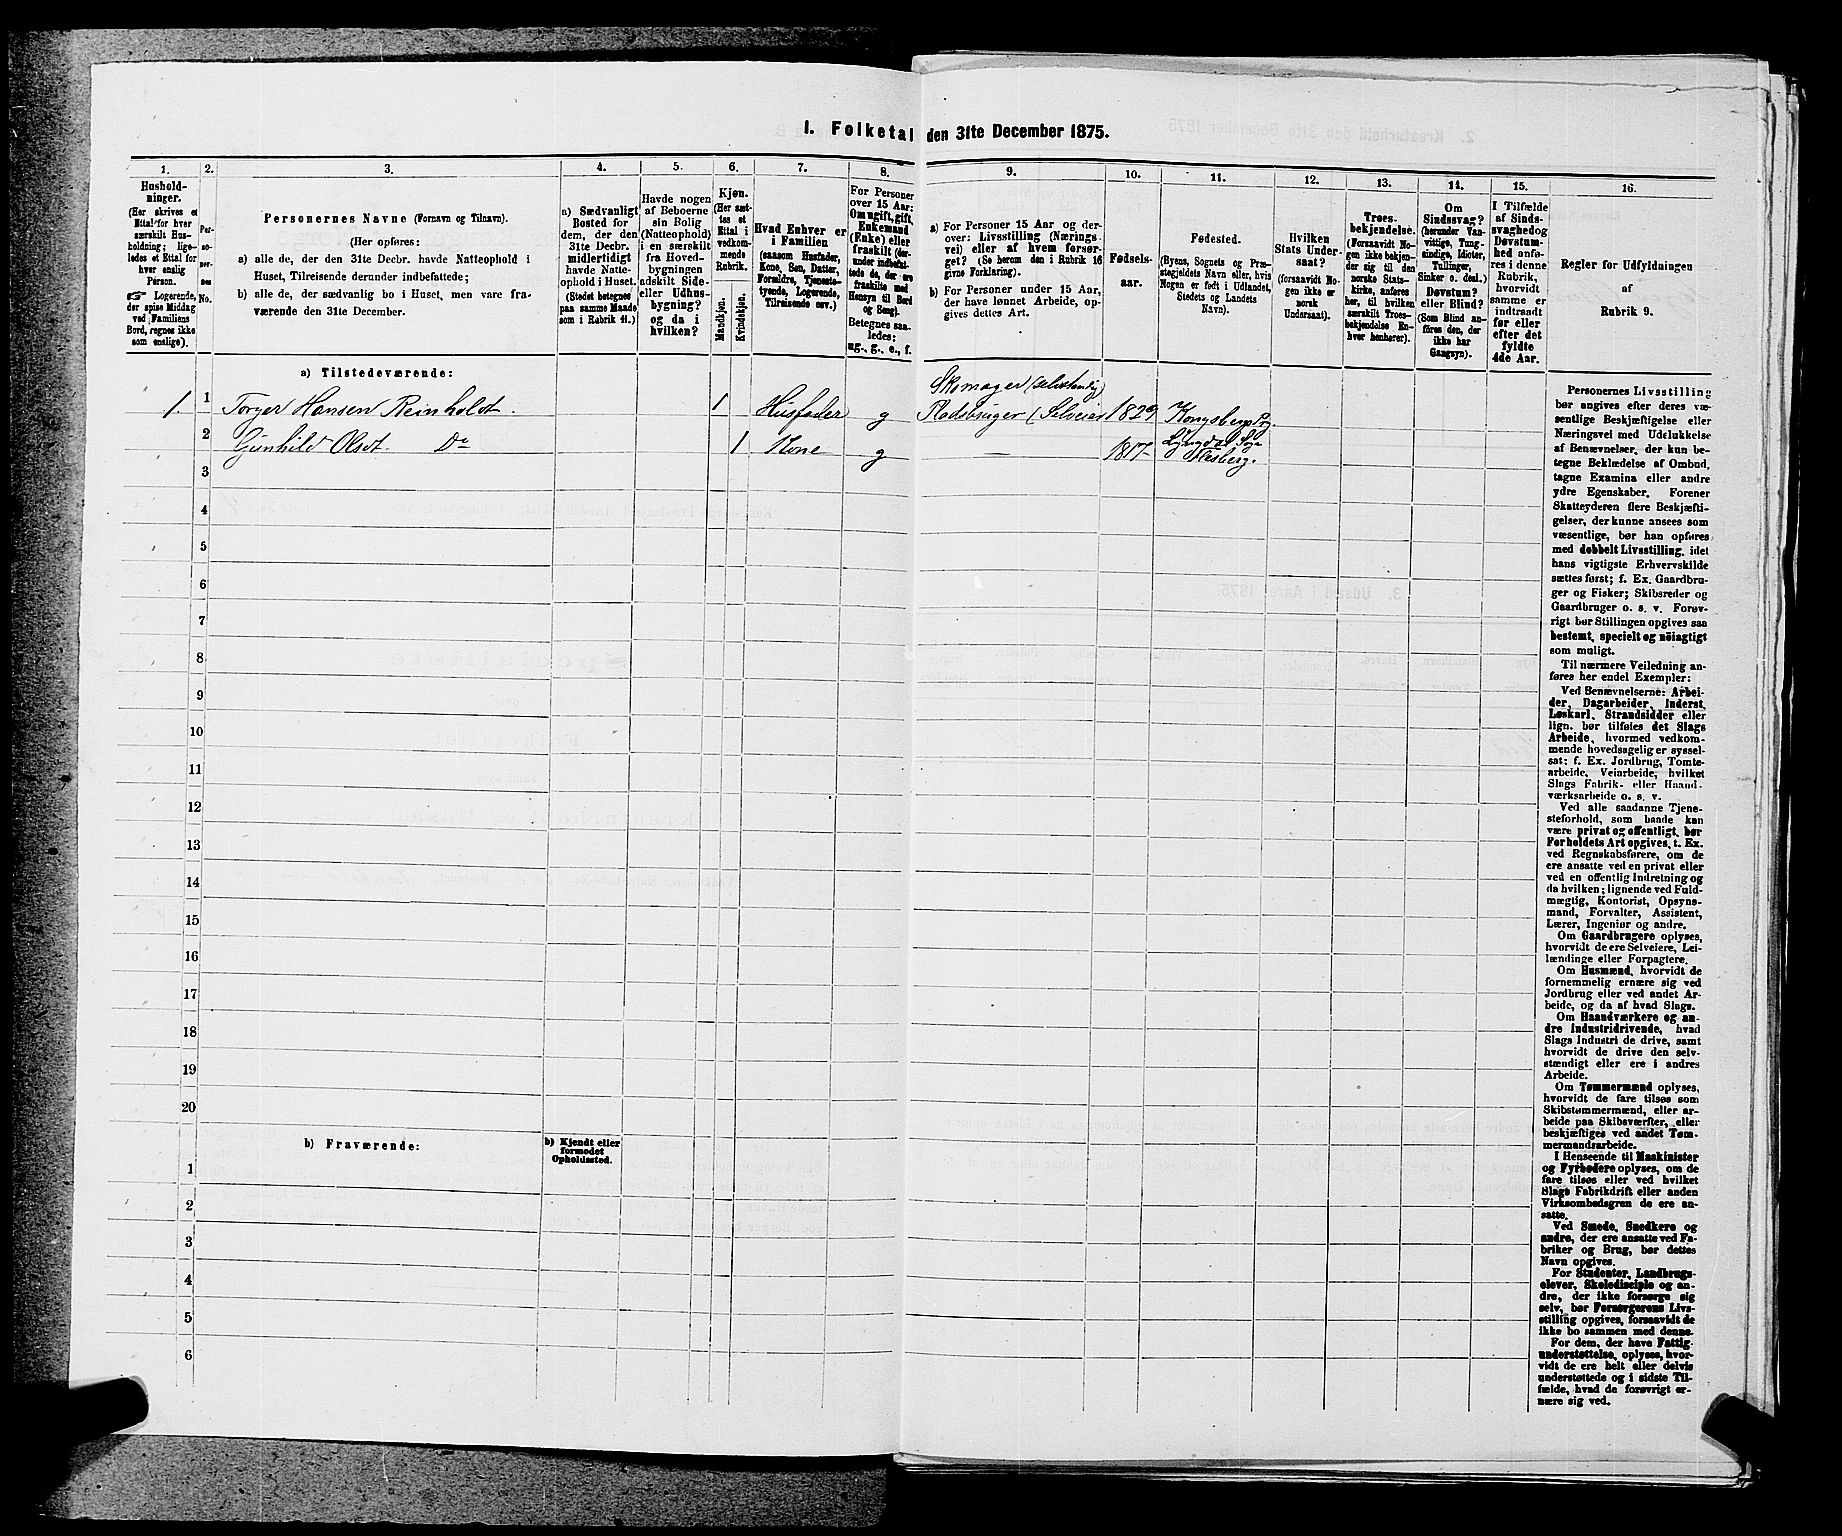 1. Folketal den 31te December 1875.
1.
Hushold-
ninger.
(Her skrives et
Ettal for hver
særskilt Hus-
holdning; lige-
ledes et Ettal for
hver enslig
Person.
Logerende,
der spise Middag
ved Familiens
Bord, regnes ikke
som enslige).
2.
Per-
so-
ner-
nes
No.
3.
Personernes Navne (Fornavn og Tilnavn).
(Her opføres:
a) alle de, der den 31te Decbr. havde Natteophold i
Huset, Tilreisende derunder indbefattede;
b) alle de, der sædvanlig bo i Huset, men vare fra-
værende den 31te December.
4.
a) Sædvanligt
Bosted for
dem, der den
31te Decbr.
midlertidigt
havde Natte-
ophold i Huset.
(Stedet betegnes
paa samme Maade
som i Rubrik 11.)
5.
Havde nogen
af Beboerne
sin Bolig
(Natteophold)
i en særskilt
fra Hoved-
bygningen
adskilt Side-
eller Udhus-
bygning?
og da i
hvilken?
6.
Kjøn.
(Her sæt-
tes et
Ettal i
vedkom-
mende
Rubrik.
Mandkjøn.
Kvindekjøn.
7.
Hvad Enhver er
i Familien
(saasom Husfader,
Kone, Søn, Datter,
Forældre, Tjeneste-
tyende, Logerende,
Tilreisende osv.)
8.
For Personer
over 15 Aar:
Om ugift, gift,
Enkemand
(Enke) eller
fraskilt (der-
under indbefat-
tede de, der ere
fraskilte med
Hensyn til Bord
og Seng).
Betegnes saa-
ledes:
ug., g., e., f.
9.
a) For Personer 15 Aar og der-
over: Livsstilling (Nærings-
vei) eller af hvem forsør-
get? (Se herom den i Rubrik 16
givne Forklaring).
b) For Personer under 15 Aar,
der have lønnet Arbeide, op-
gives dettes Art.
10.
Fødsels-
aar.
11.
Fødested.
(Byens, Sognets og Præ-
stegjeldets Navn eller, hvis
Nogen er født i Udlandet,
Stedets og Landets
Navn).
12.
Hvilken
Stats Under-
saat?
(forsaavidt No-
gen ikke er
norsk
Undersaat).
13.
Troes-
bekjendelse.
(Forsaavidt No-
gen ikke bekjen-
der sig til den
norske Stats-
kirke, anføres
her, til hvilken
særskilt Troes-
bekjendelse En-
hver henhører).
14.
Om
Sindssvag?
(herunder Van-
vittige, Tung-
sindige, Idioter,
Tullinger,
Sinker o. desl.)
Døvstum?
eller Blind?
(Som Blind an-
føres den, der
ikke har
Gangsyn).
15.
I Tilfælde
af Sinds-
svaghed og
Døvstum-
hed anfø-
res i denne
Rubrik,
hvorvidt
samme er
indtraadt
før eller
efter det
fyldte
4de Aar.
16.
Regler for Udfyldningen
af
Rubrik 9.
a) Tilstedeværende:
1. 1 Torger Hansen Reinholdt. 1 Husfader g Skomager (selvstændig) Pladsbruger (Selveier 1829 Kongsberg
2 Gunhild Olsdt. Do 1 Kone g — 1817 Lyngdal Sogn Flesberg.
3
4
5
6
7
8
9
10
11
12
13
14
15
16
17
18
19
20
b) Fraværende:
b) Kjendt eller
formodet
Opholdssted.
1
2
3
4
5
6
Personernes Livsstilling
bør angives efter deres væ-
sentlige Beskjæftigelse eller
Næringsvei med Udelukkelse
af Benævnelser, der kun be-
tegne Beklædelse af Ombud,
tagne Examina eller andre
ydre Egenskaber. Forener
Skatteyderen flere Beskjæfti-
gelser, der kunne ansees som
væsentlige, bør han opføres
med dobbelt Livsstilling, idet
hans vigtigste Erhvervskilde
sættes først; f. Ex. Gaardbru-
ger og Fisker; Skibsreder og
Gaardbruger o. s. v. Forøv-
rigt bør Stillingen opgives saa
bestemt, specielt og nöiagtigt
som muligt.
Til nærmere Veiledning an-
føres her endel Exempler:
Ved Benævnelserne: Arbei-
der, Dagarbeider, Inderst,
Løskarl, Strandsidder eller
lign. bør tilføies det Slags
Arbeide, hvormed vedkom-
mende hovedsagelig er syssel-
sat; f. Ex. Jordbrug, Tomte-
arbeide, Veiarbeide, hvilket
Slags Fabrik- eller Haand-
værksarbeide o. s. v.
Ved alle saadanne Tjene-
steforhold, som baade kan
være privat og offentligt, bør
Forholdets Art opgives, f. Ex.
ved Regnskabsførere, om de
ere ansatte ved en privat eller
ved en offentlig Indretning og
da hvilken; lignende ved Fuld-
mægtig, Kontorist, Opsyns-
mand, Forvalter, Assistent,
Lærer, Ingeniør og andre.
Om Gaardbrugere oplyses,
hvorvidt de ere Selveiere, Lei-
lændinge eller Forpagtere.
Om Husmænd, hvorvidt de
fornemmelig ernære sig ved
Jordbrug eller ved andet Ar-
beide, og da af hvad Slags.
Om Haandværkere og an-
dre Industridrivende, hvad
Slags Industri de drive, samt
hvorvidt de drive den selv-
stændigt eller ere i andres
Arbeide.
Om Tømmermænd oplyses,
hvorvidt de fare tilsøs som
Skibstømmermænd, eller ar-
beide paa Skibsværfter, eller
beskjæftiges ved andet Tøm-
mermandsarbeide.
I Henseende til Maskinister
og Fyrbødere oplyses, om de
fare tilsøs eller ved hvilket
Slags Fabrikdrift eller anden
Virksombedsgren de ere an-
satte.
Ved Smede, Snedkere og
andre, der ere ansatte ved Fa-
briker og Brug, bør dettes
Navn opgives.
For Studenter, Landbrugs-
elever, Skoledisciple og an-
dre, der ikke forsørge sig
selv, bør Forsørgerens Livs-
stilling opgives, forsaavidt de
ikke bo sammen med denne.
For dem, der have Fattig-
understøttelse, oplyses, hvor-
vidt de ere helt eller delvis
understøttede og i sidste Til-
fælde, hvad de forøvrigt er-
nære sig ved.